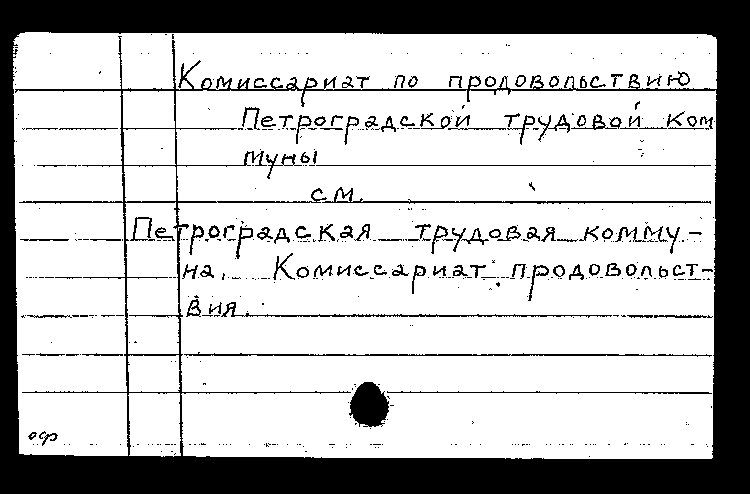 Комиссариат по продовольствию
Петроградской трудовой ком
муны
см.
Петроградская трудовая комму-
на. Комиссариат продовольст-
вия.
оср